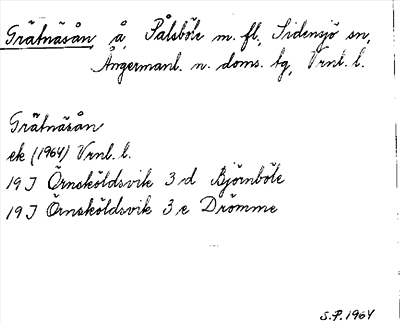 Grätnäsån, å, Pålsböle m. fl., Sidensjö sn,
Ångermanl. n. doms. tg, Vrnl. l.
Grätnäsån
ek (1964) Vrnl. l.
19 J Örnsköldsvik 3 d Björnböle
19 J Örnsköldsvik 3 e Drömme
S.P. 1964